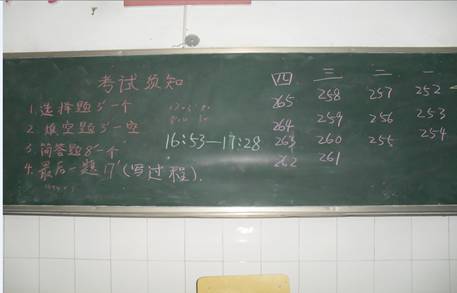 考试须知
1.选择题5'一个
2.填空题5'一空
3.简答题8'一个
4.最后一题17'(写过程).
16:53—17:28
四 三 二 一
265 258 257 252
264 259 256 253
263 260 255 254
262 261